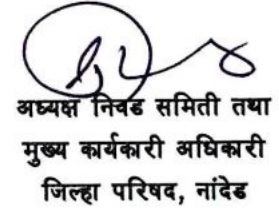 अध्यक्ष निवड समिती तथा
मुख्य कार्यकारी अधिकारी
जिल्हा परिषद, नांदेड